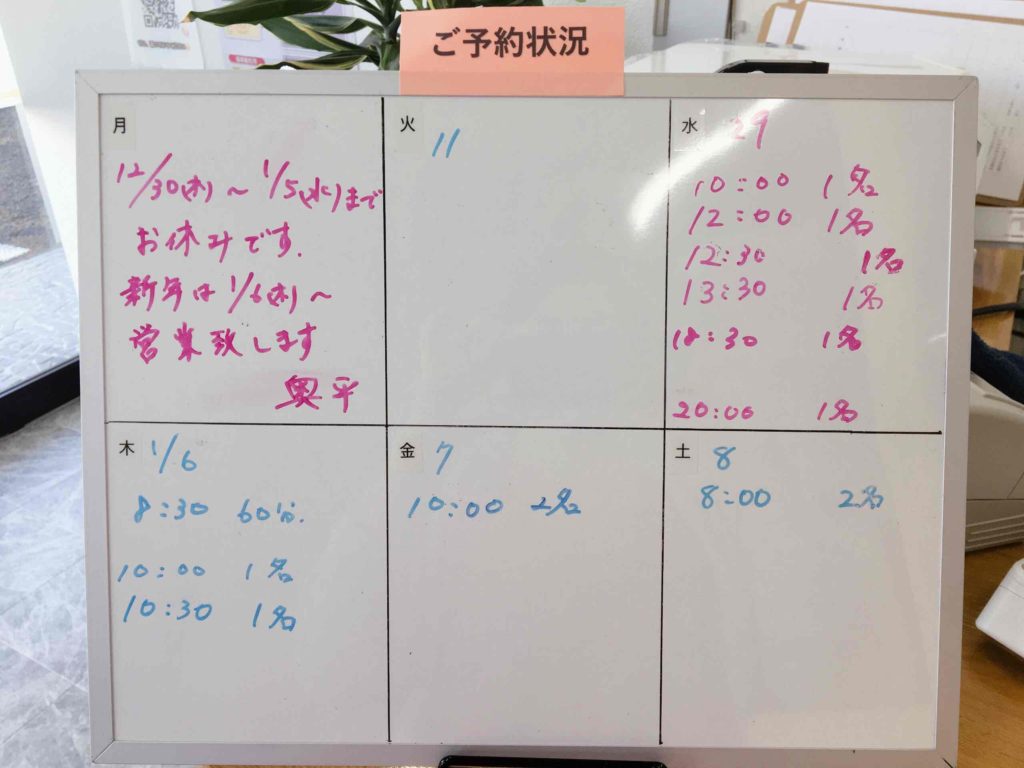 ご予約状況
月
12/30(木)～1/5(水)まで
お休みです.
新年は1/6(木)～
営業致します
奥平
火
11
水
29
10:00 1名
12:00 1名
12:30 1名
13:30 1名
18:30 1名
20:00 1名
木
1/6
8:30 60分.
10:00 1名
10:30 1名
金
7
10:00 2名
土
8
8:00 2名